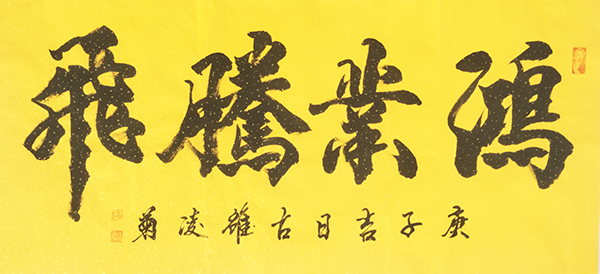 鴻業騰飛
庚子吉日古雒凌菊